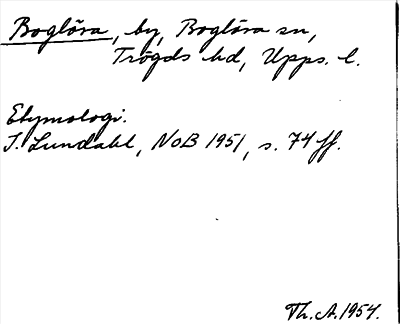 Boglösa, by, Boglösa sn,
Trögds hd, Upps. l.
Etymologi.
I. Lundahl, NoB 1951, s. 74 ff.
Th. A. 1954.